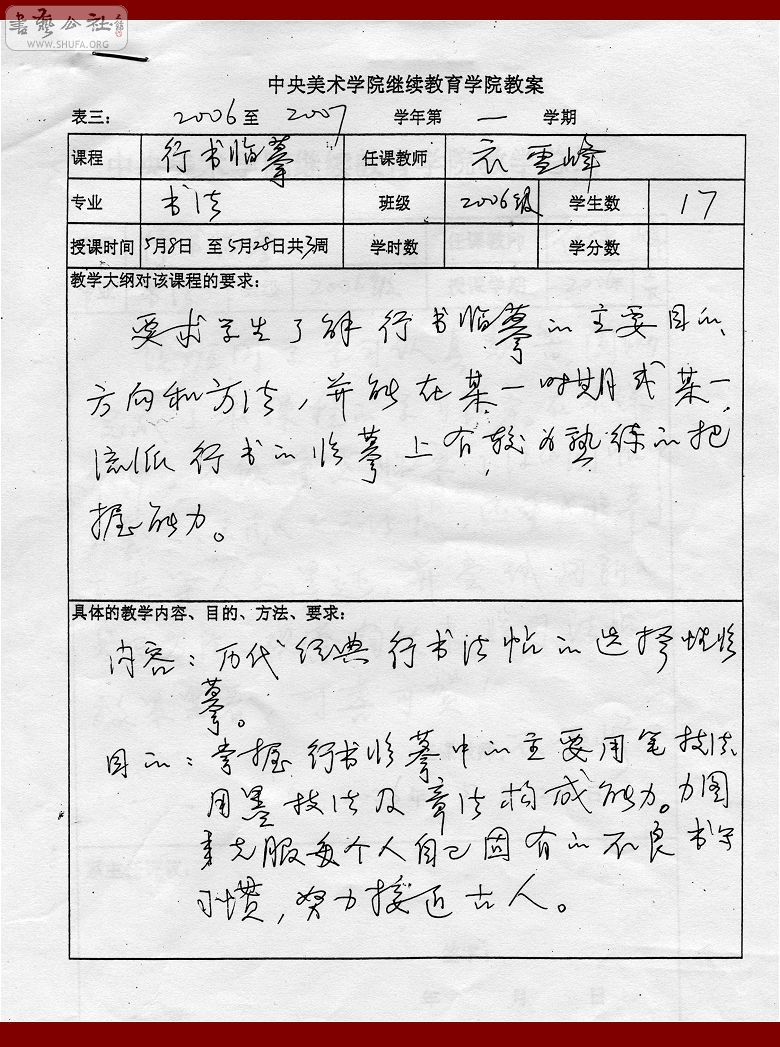 書藝公社
WWW.SHUFA.ORG
中央美术学院继续教育学院教案
表三: 2006至 2007 学年第 一 学期
课程 行书临摹 任课教师 衣雪峰
专业 书法 班级 2006级 学生数 17
授课时间 5月8日 至5月28日共3周 学时数 学分数
教学大纲对该课程的要求:
要求学生了解行书临摹的主要目的、
方向和方法,并能在某一时期或某一
流派行书的临摹上有较为熟练的把
握能力。
具体的教学内容、目的、方法、要求:
内容:历代经典行书法帖的选择性临
摹。
目的:掌握行书临摹中的主要用笔技法、
用墨技法及章法构成能力。力图
克服每个人自己固有的不良书写
习惯,努力接近古人。